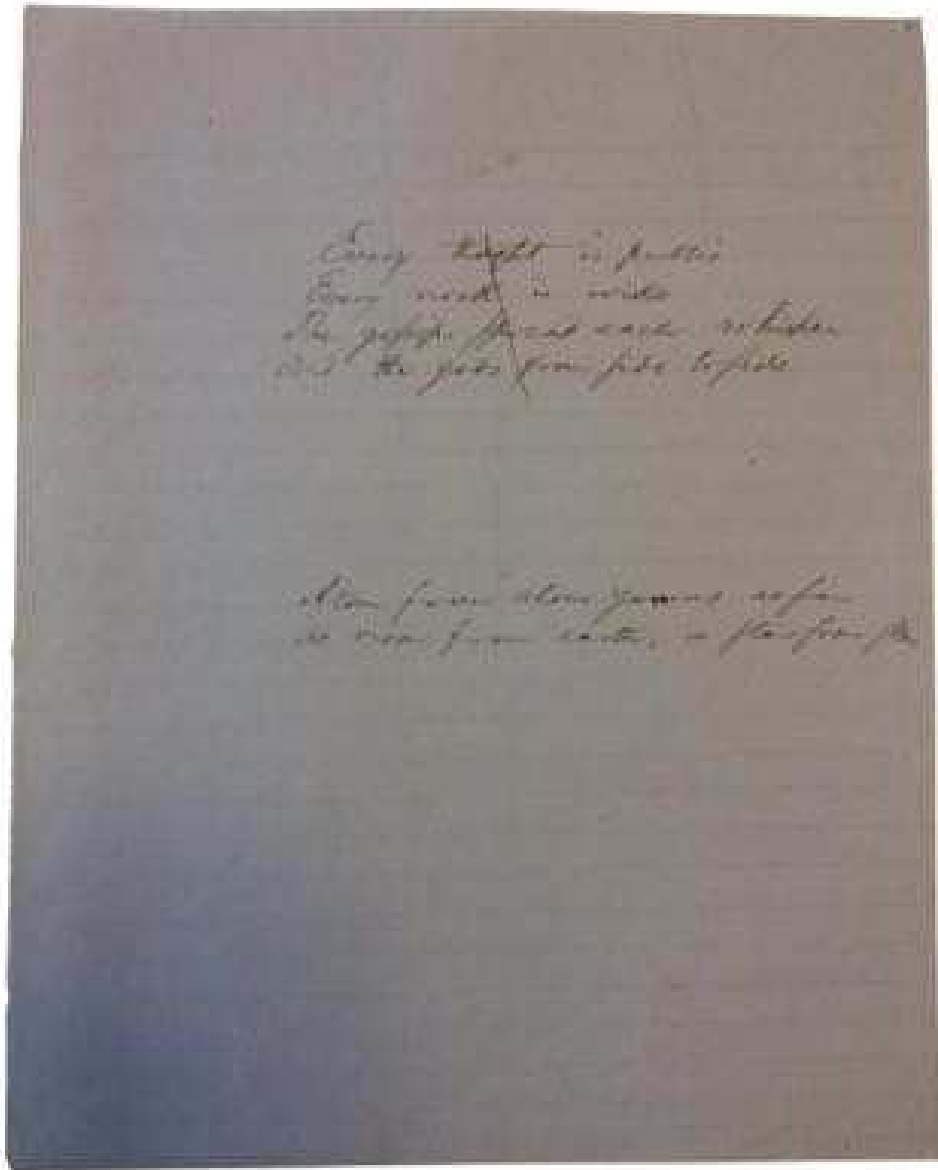 Every thought is public
Every nook is wide
gossips spread each whisper
And the gods from side to side
Atom from atom yawns as far
As moon from earth, or star from star